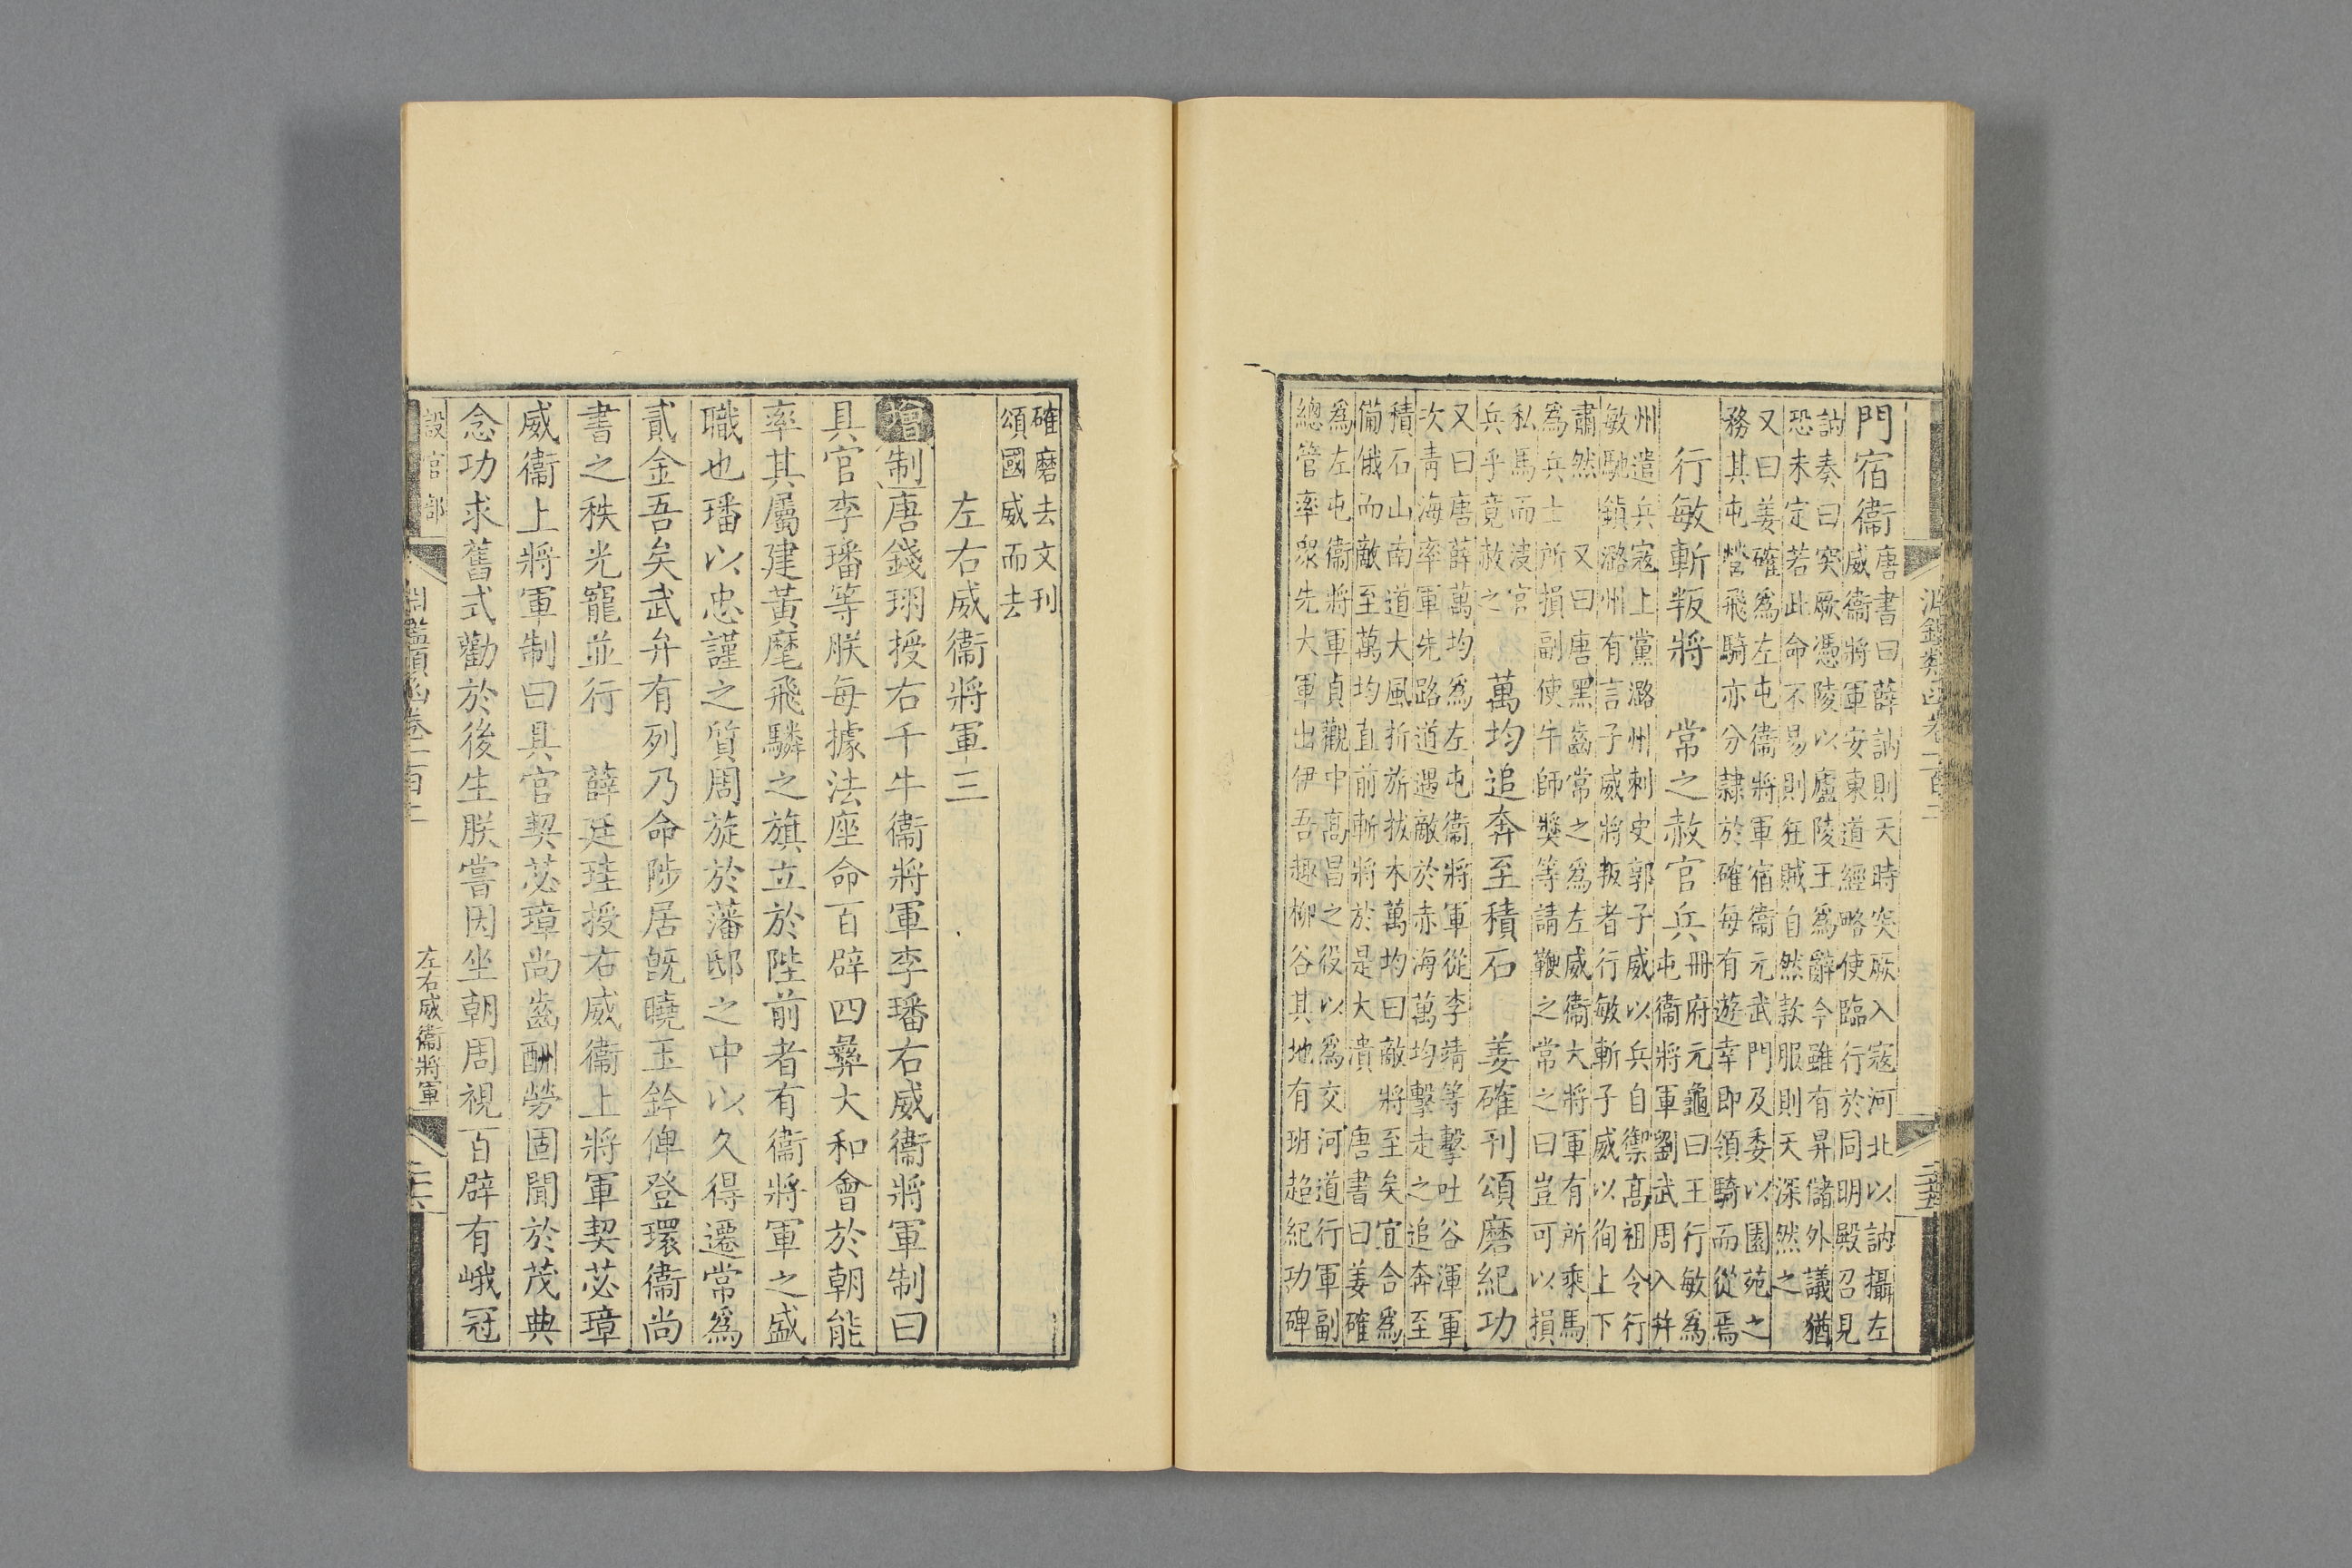 淵鑑類函卷一百二
二十五
門宿衛
唐書曰薛訥則天時突厥入寇河北以訥攝左
威衛將軍安東道經略使臨行於同明殿召見
訥奏曰突厥憑陵以廬陵王爲辭今雖有昇儲外議猶
恐未定若此命不易則狂賊自然款服則天深然之
又曰姜確爲左屯衛將軍宿衛元武門及委以園苑之
務其屯營飛騎亦分隸於確每有遊幸即領騎而從焉
行敏斬叛將　常之赦官兵
冊府元龜曰王行敏爲
屯衛將軍劉武周入并
州遣兵寇上黨潞州刺史郭子威以兵自禦高祖令行
敏馳鎮潞州有言子威將叛者行敏斬子威以徇上下
肅然　又曰唐黑齒常之爲左威衛大將軍有所乘馬
爲兵士所損副使牛師獎等請鞭之常之曰豈可以損
私馬而決官
兵乎竟赦之
萬均追奔至積石　姜確刊頌磨紀功
又曰唐薛萬均爲左屯衛將軍從李靖等擊吐谷渾軍
次青海率軍先路道遇敵於赤海萬均擊走之追奔至
積石山南道大風折旂拔木萬均曰敵將至矣宜合爲
備俄而敵至萬均直前斬將於是大潰　唐書曰姜確
爲左屯衛將軍貞觀中高昌之役以爲交河道行軍副
總管率衆先大軍出伊吾趣柳谷其地有班超紀功碑
確磨去文刊
頌國威而去
左右威衛將軍三
增制唐錢珝授右千牛衞將軍李璠右威衛將軍制曰
具官李璠等朕每據法座命百辟四彝大和會於朝能
率其屬建黃麾飛驎之旗立於陛前者有衞將軍之盛
職也璠以忠謹之質周旋於藩邸之中以久得遷常爲
貳金吾矣武弁有列乃命陟居旣曉玉鈐俾登環衞尚
書之秩光寵並行　薛廷珪授右威衞上將軍契苾璋
威衞上將軍制曰具官契苾璋尚齒酬勞固聞於茂典
念功求舊式勸於後生朕嘗因坐朝周視百辟有峨冠
設官部
淵鑑類函卷一百二
左右威衞將軍
二十六